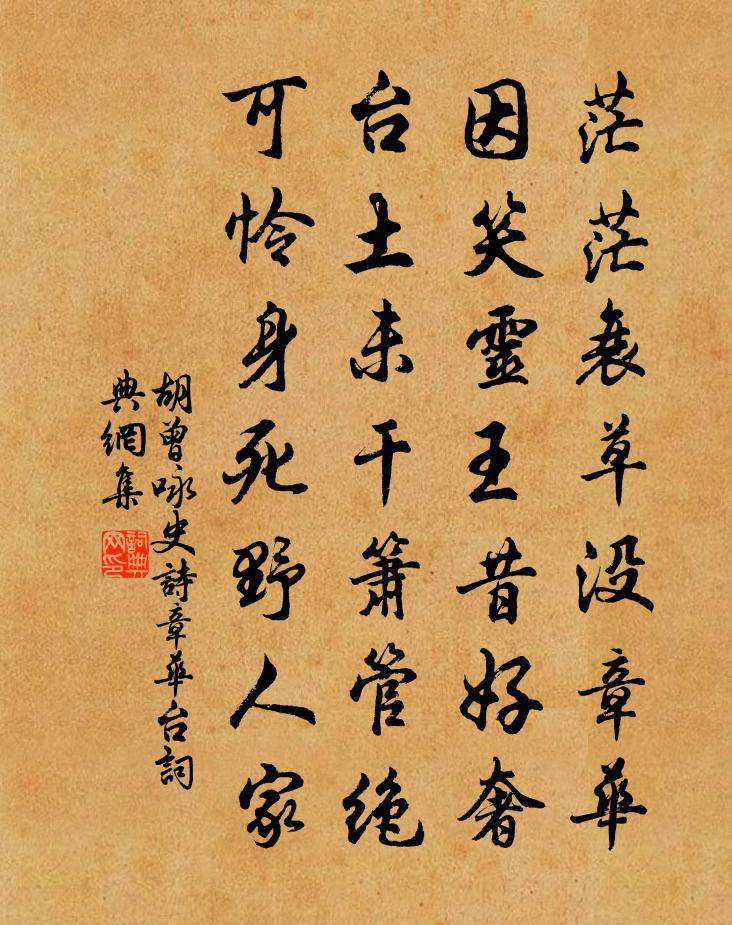 茫茫衰草没章華
因笑靈王昔好奢
台土未干簫管绝
可怜身死野人家
胡曾咏史詩章華台詞
典網集
詞典
网印